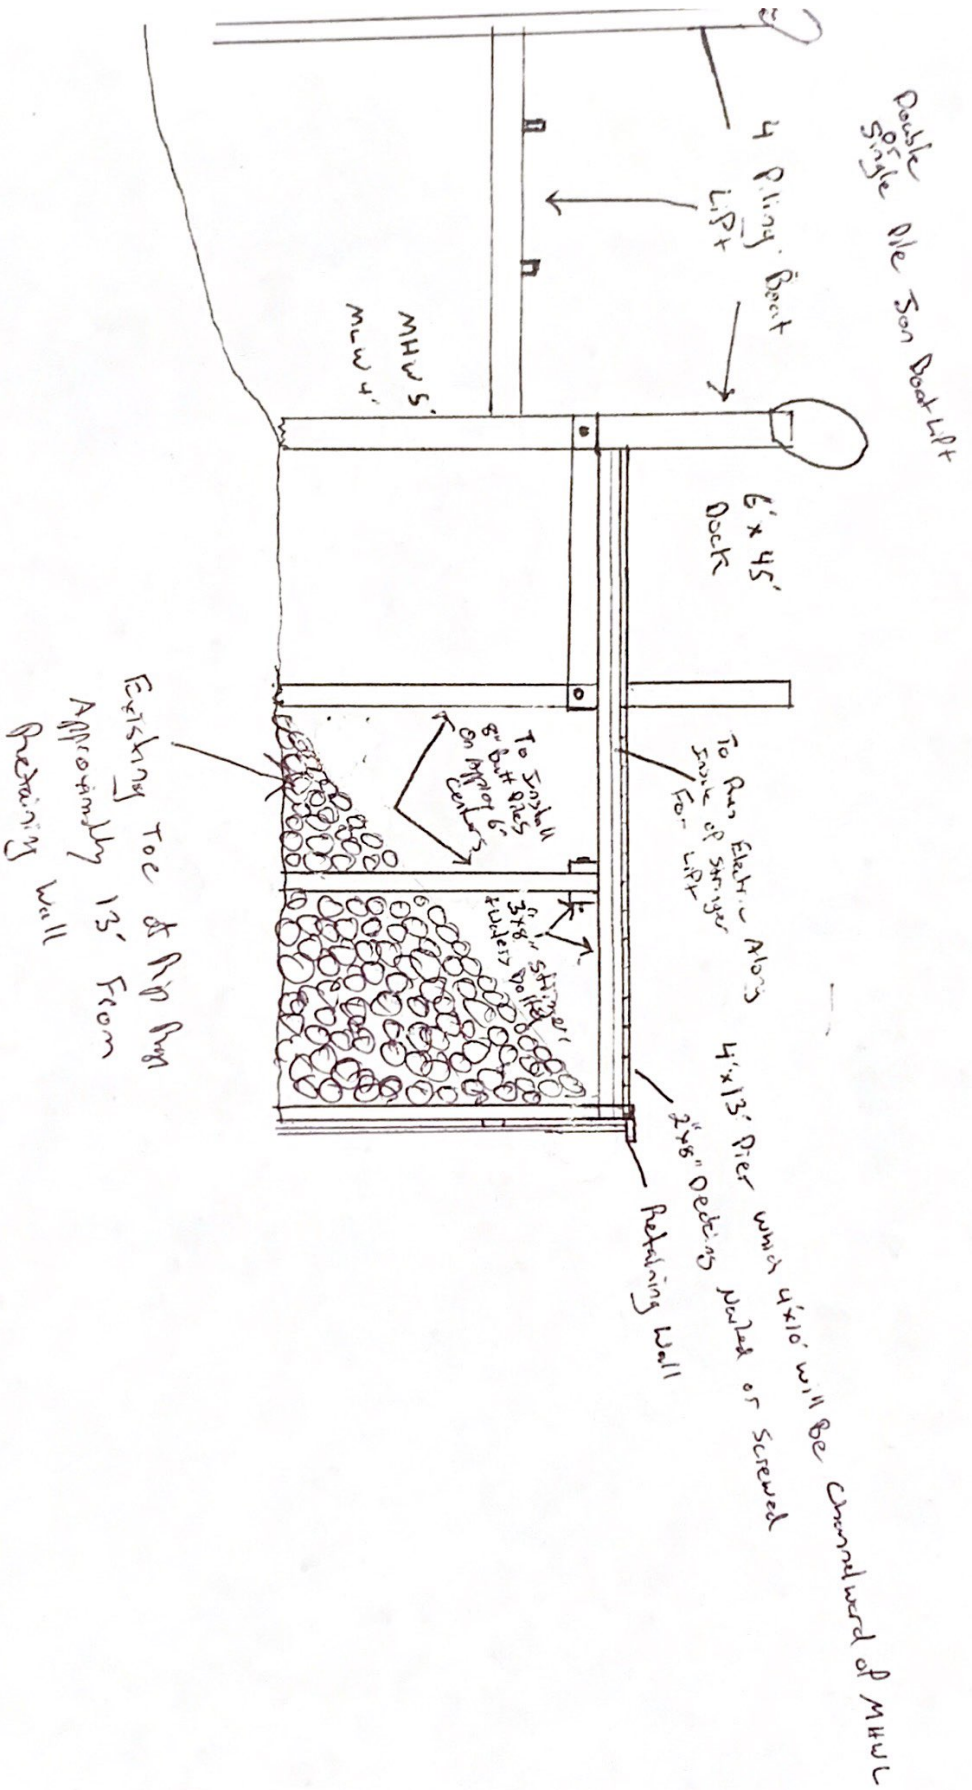 Double
or
Single Pile Jon Boat Lift
4 Piling Boat
Lift
MHW 5'
MLW 4'
6' x 45'
Dock
To Run Electric Along
Inside of Stringer
For Lift
To Install
8" butt Piles
on Approx 6'
Centers
3"x8" Stringers
Bolted
4'x13' Pier which 4'x10' will Be Channelward of MHWL
2"x8" Decking Nailed or Screwed
Retaining Wall
Existing Toe of Rip Rap
Approximatly 13' From
Retaining Wall